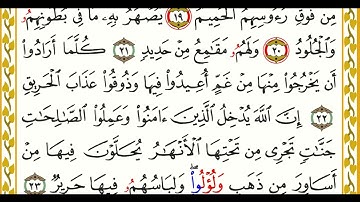 مِن فَوْقِ رُءُوسِهِمُ ٱلْحَمِيمُ ١٩ يُصْهَرُ بِهِۦ مَا فِى بُطُونِهِمُۥ
وَٱلْجُلُودُ ٢٠ وَلَهُمُۥ مَقَٰمِعُ مِنْ حَدِيدٍ ٢١ كُلَّمَا أَرَادُوا۟
أَن يَخْرُجُوا۟ مِنْهَا مِنْ غَمٍّ أُعِيدُوا۟ فِيهَا وَذُوقُوا۟ عَذَابَ ٱلْحَرِيقِ
٢٢ إِنَّ ٱللَّهَ يُدْخِلُ ٱلَّذِينَ ءَامَنُوا۟ وَعَمِلُوا۟ ٱلصَّٰلِحَٰتِ
جَنَّٰتٍ تَجْرِى مِن تَحْتِهَا ٱلْأَنْهَٰرُ يُحَلَّوْنَ فِيهَا مِنْ
أَسَاوِرَ مِن ذَهَبٍ وَلُؤْلُؤٍا وَلِبَاسُهُمُۥ فِيهَا حَرِيرٌ ٢٣